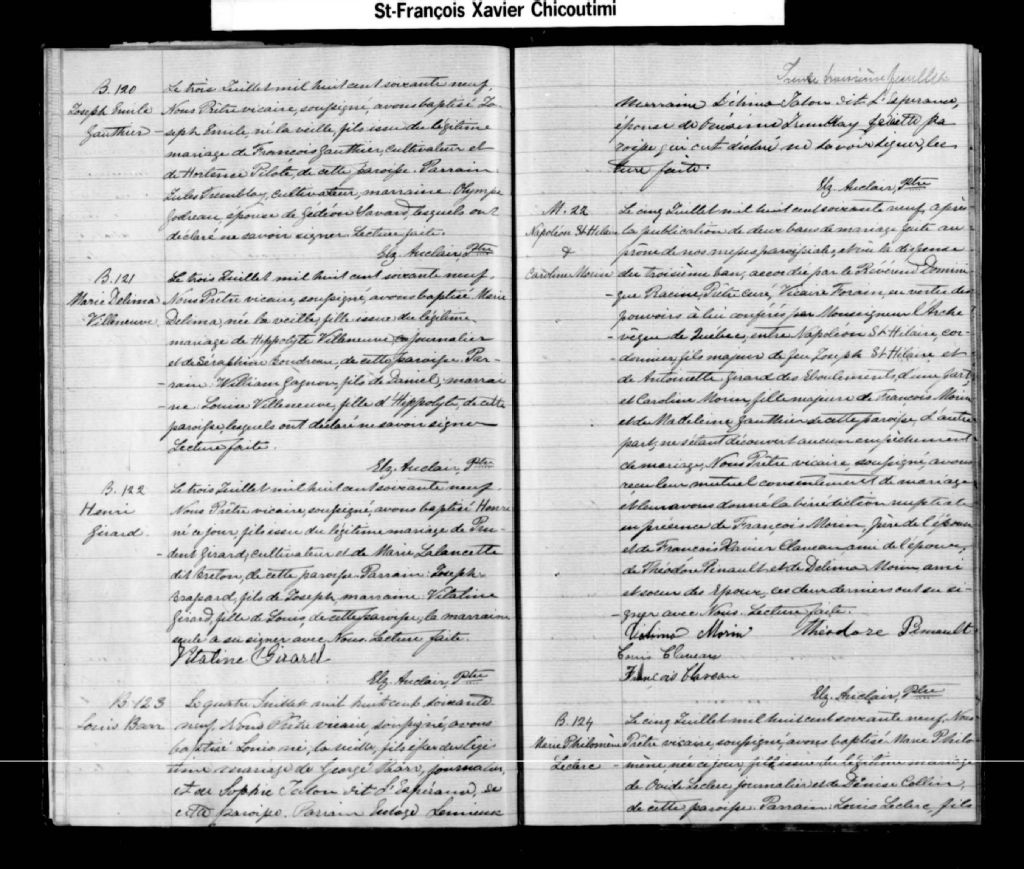 St-François Xavier Chicoutimi
B. 120
Joseph Emile
Gauthier
Le trois Juillet mil huit cent soixante neuf,
Nous Prêtre vicaire, soussigné, avons baptisé Jo-
seph Emile, né la veille, fils issu du légitime
mariage de François Gauthier, cultivateur et
de Hortense Pilote, de cette paroisse. Parrain
Jules Tremblay, cultivateur, marraine Olympe
Godreau, épouse de Gédéon Savard, lesquels ont
déclaré ne savoir signer. Lecture faite.
Elz. Auclair, Ptre
B. 121
Marie Delima
Villeneuve
Le trois Juillet mil huit cent soixante neuf
Nous Prêtre vicaire, soussigné, avons baptisé Marie
Delima, née la veille, fille issue du légitime
mariage de Hippolyte Villeneuve, journalier
et de Séraphine Boudreau, de cette paroisse. Par-
-rain William Gagnon, fils de Daniel, marrai-
-ne Louise Villeneuve, fille d'Hippolyte, de cette
paroisse, lesquels ont déclaré ne savoir signer
Lecture faite.
Elz. Auclair, Ptre
B. 122
Henri
Girard.
Le trois Juillet mil huit cent soixante neuf
Nous Prêtre vicaire, soussigné, avons baptisé Henri
né ce jour, fils issu du légitime mariage de Pru-
-dent Girard, cultivateur et de Marie Lalancette
dit Breton, de cette paroisse. Parrain Joseph
Brassard, fils de Joseph, marraine Vitaline
Girard, fille de Louis, de cette paroisse, la marraine
seule a su signer avec Nous. Lecture faite.
Vitaline Girard
Elz. Auclair, Ptre
B. 123
Louis Barr
Le quatre Juillet mil huit cent soixante
neuf, Nous Prêtre vicaire, soussigné, avons
baptisé Louis né, la veille, fils issu du légi-
time mariage de George Barr, journalier,
et de Sophie Talon dit L'Esperance, de
cette paroisse. Parrain Lemieux
Trente troisième feuillet
Marraine Délima Talon dit L'Esperance,
épouse de Tremblay de cette pa-
roisse qui ont déclaré ne savoir signer, lec-
ture faite.
Elz. Auclair, Ptre
M. 22
Napoléon St-Hilaire
&
Caroline Morin
Le cinq Juillet mil huit cent soixante neuf, après
la publication de deux bans de mariage faite au
prône de nos messes paroissiales, et vu la dispense
du troisième ban, accordée par le Révérend Domini-
-que Racine, Prêtre curé, Vicaire Forain, en vertu des
pouvoirs à lui conférés par Monseigneur l'Arche-
-vêque de Québec, entre Napoléon St-Hilaire, cor-
-donnier, fils majeur de feu Joseph St-Hilaire et
de Antoinette Girard des Eboulements, d'une part;
et Caroline Morin fille majeure de François Morin
et de Madeleine Gauthier de cette paroisse, d'autre
part, ne s'étant découvert aucun empêchement
de mariage, Nous Prêtre vicaire, soussigné, avons
reçu leur mutuel consentement de mariage
et leur avons donné la bénédiction nuptiale
en présence de François Morin, père de l'épouse
et de François Xavier Claveau ami de l'époux,
de Théodore Pinault et de Delima Morin, ami
et soeur des Epoux, ces deux derniers ont su si-
-gner avec Nous. Lecture faite.
Délima Morin Théodore Pinault
Louis Claveau
François Claveau
Elz. Auclair, Ptre
B. 124
Marie Philomène
Leclerc
Le cinq Juillet mil huit cent soixante neuf, Nous
Prêtre vicaire, soussigné, avons baptisé Marie Philo-
-mène, née ce jour, fille issue du légitime mariage
de Ovide Leclerc, journalier et de Dénise Collin,
de cette paroisse. Parrain Louis Leclerc, fils